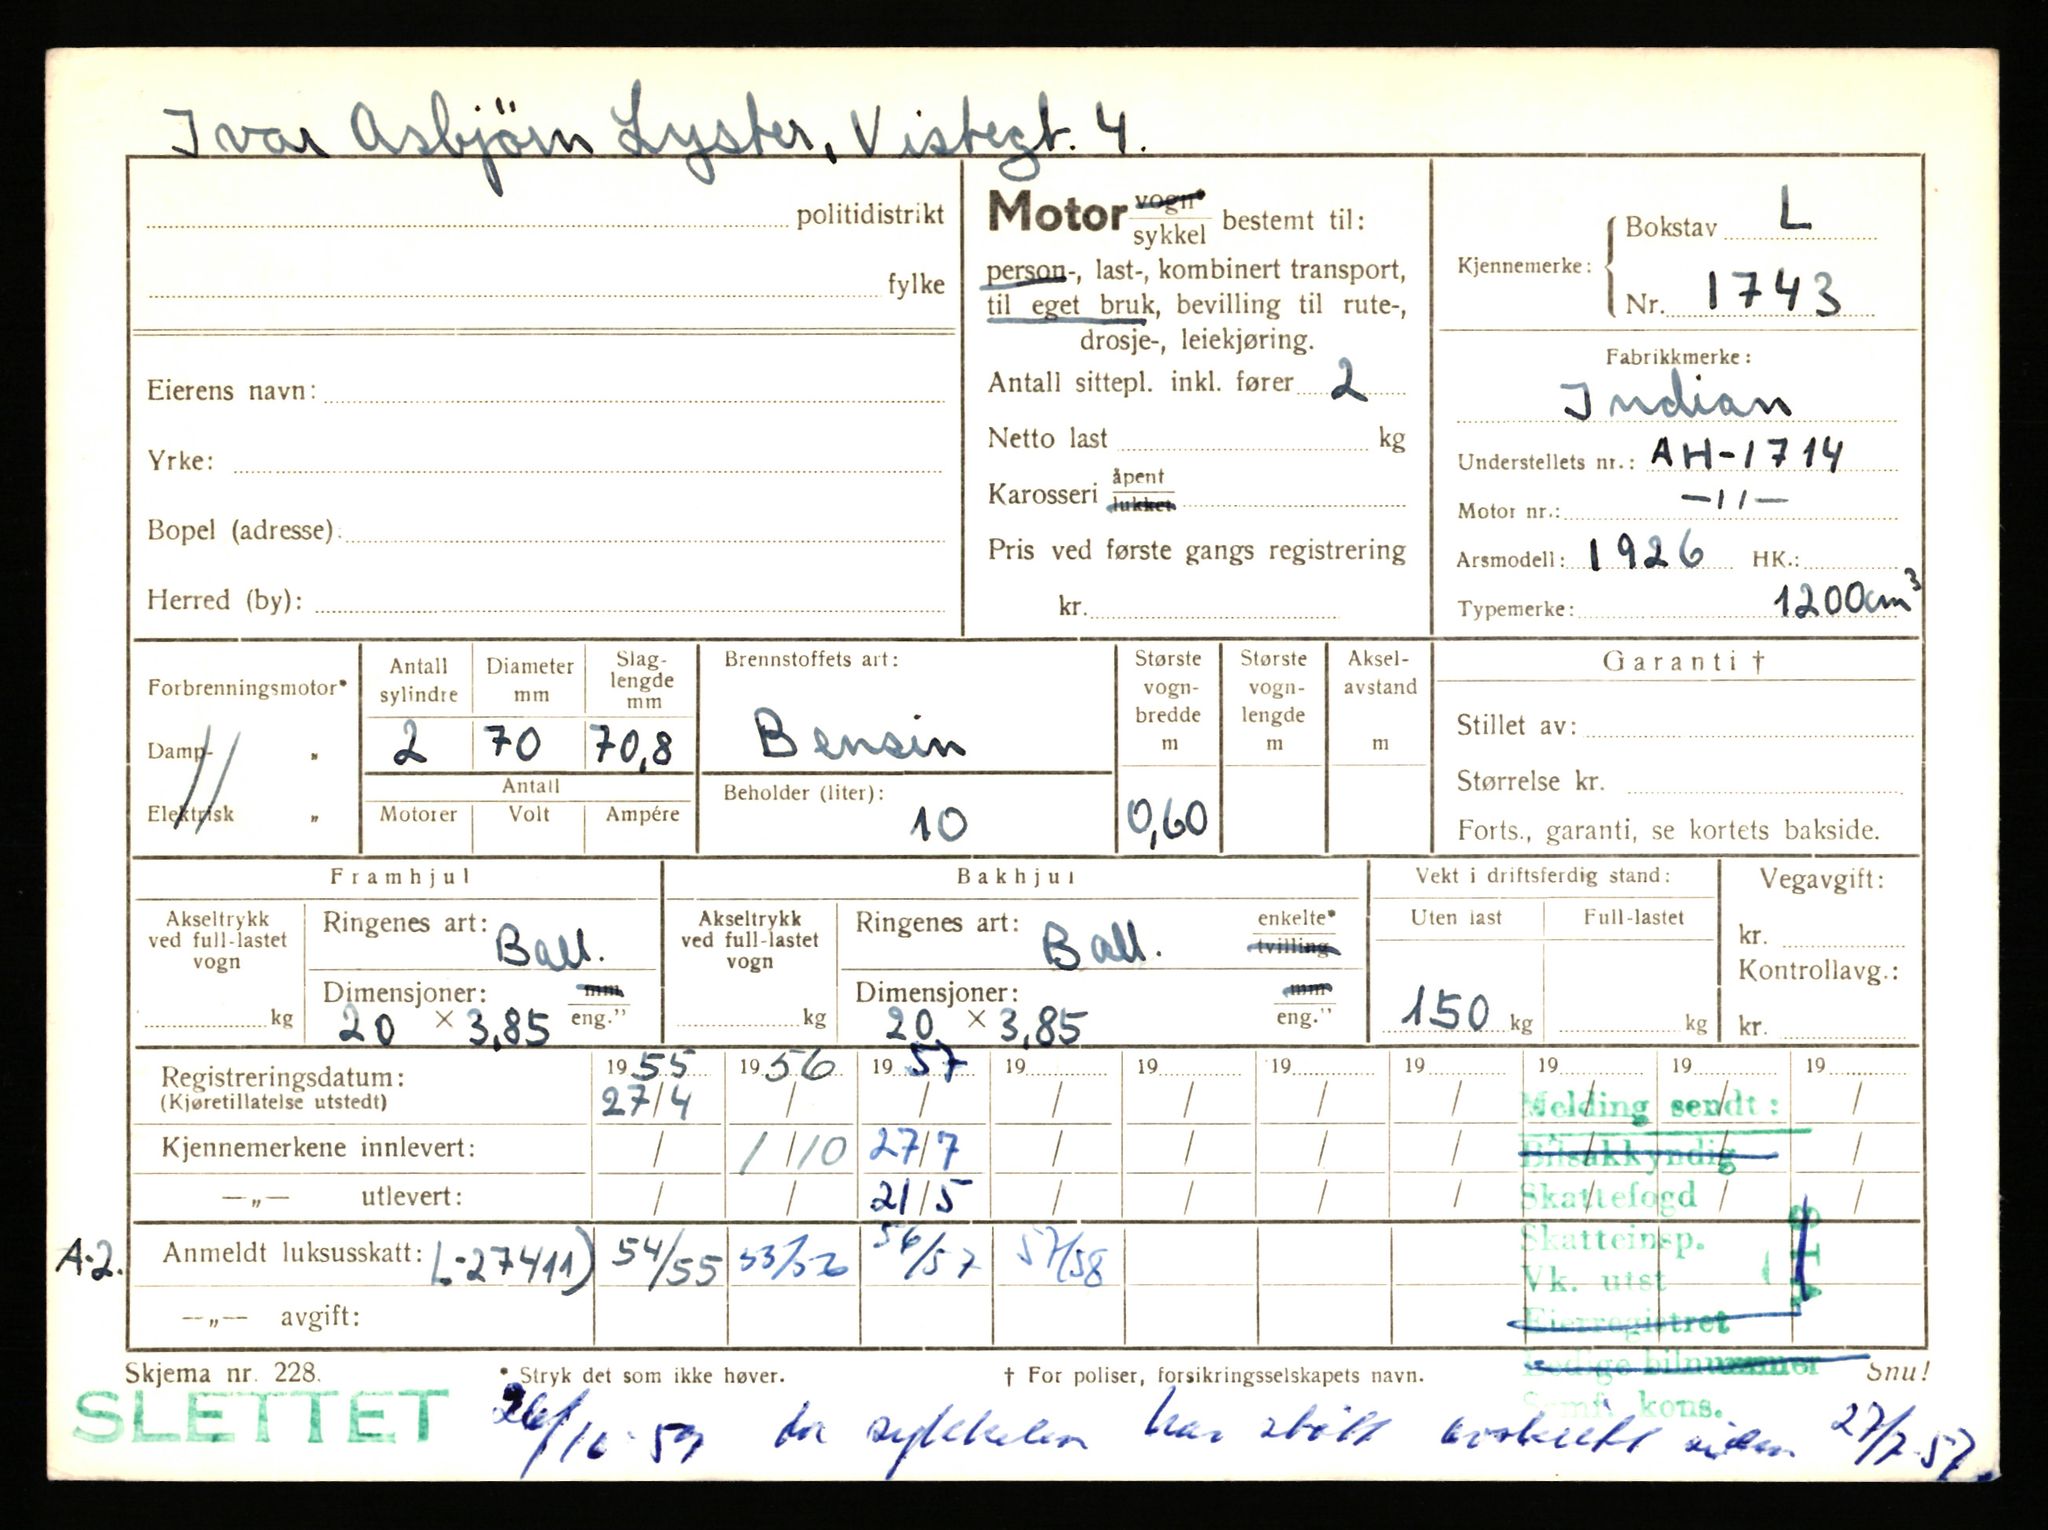 Ivar Asbjörn Lyster, Vistegt. 4.
politidistrikt
fylke
Eierens navn:
Yrke:
Bopel (adresse):
Herred (by):
Motor vogn* sykkel bestemt til:
person-, last-, kombinert transport,
til eget bruk, bevilling til rute-,
drosje-, leiekjøring.
Antall sittepl. inkl. fører 2
Netto last kg
Karosseri åpent lukket
Pris ved første gangs registrering
kr.
Kjennemerke: Bokstav L
Nr. 1743
Fabrikkmerke:
Indian
Understellets nr.: AH-1714
Motor nr.: —11—
Arsmodell: 1926 HK.:
Typemerke: 1200cm³
Forbrenningsmotor*
Damp- „
Elektrisk „
Antall sylindre Diameter mm Slag-lengde mm
2 70 70,8
Antall
Motorer Volt Ampére
Brennstoffets art:
Bensin
Beholder (liter):
10
Største vogn-bredde m
0,60
Største vogn-lengde m
Aksel-avstand m
Garanti †
Stillet av:
Størrelse kr.
Forts., garanti, se kortets bakside.
Framhjul
Akseltrykk ved full-lastet vogn
kg
Ringenes art: Ball.
Dimensjoner: mm eng."
20 × 3,85
Bakhjul
Akseltrykk ved full-lastet vogn
kg
Ringenes art: Ball. enkelte* tvilling
Dimensjoner: mm eng."
20 × 3,85
Vekt i driftsferdig stand:
Uten last Full-lastet
150 kg kg
Vegavgift:
kr.
Kontrollavg.:
kr.
Registreringsdatum: 1955 1956 1957 19 19 19 19 19 19 19
(Kjøretillatelse utstedt) 27/4 / / / / / / / / /
Kjennemerkene innlevert: / 1/10 27/7 / / / / / / /
—„— utlevert: / / 21/5 / / / / / / /
A-2. Anmeldt luksusskatt: L-27411) 54/55 55/56 56/57 57/58
—„— avgift:
Melding sendt:
Bilsakkyndig
Skattefogd
Skatteinsp.
Vk. utst
Eierregistret
Ledige bilnummer
Semf. kons.
Skjema nr. 228. * Stryk det som ikke høver. † For poliser, forsikringsselskapets navn. Snu!
SLETTET 26/10-59 da sykkelen har stått avskiltt siden 27/7-57.